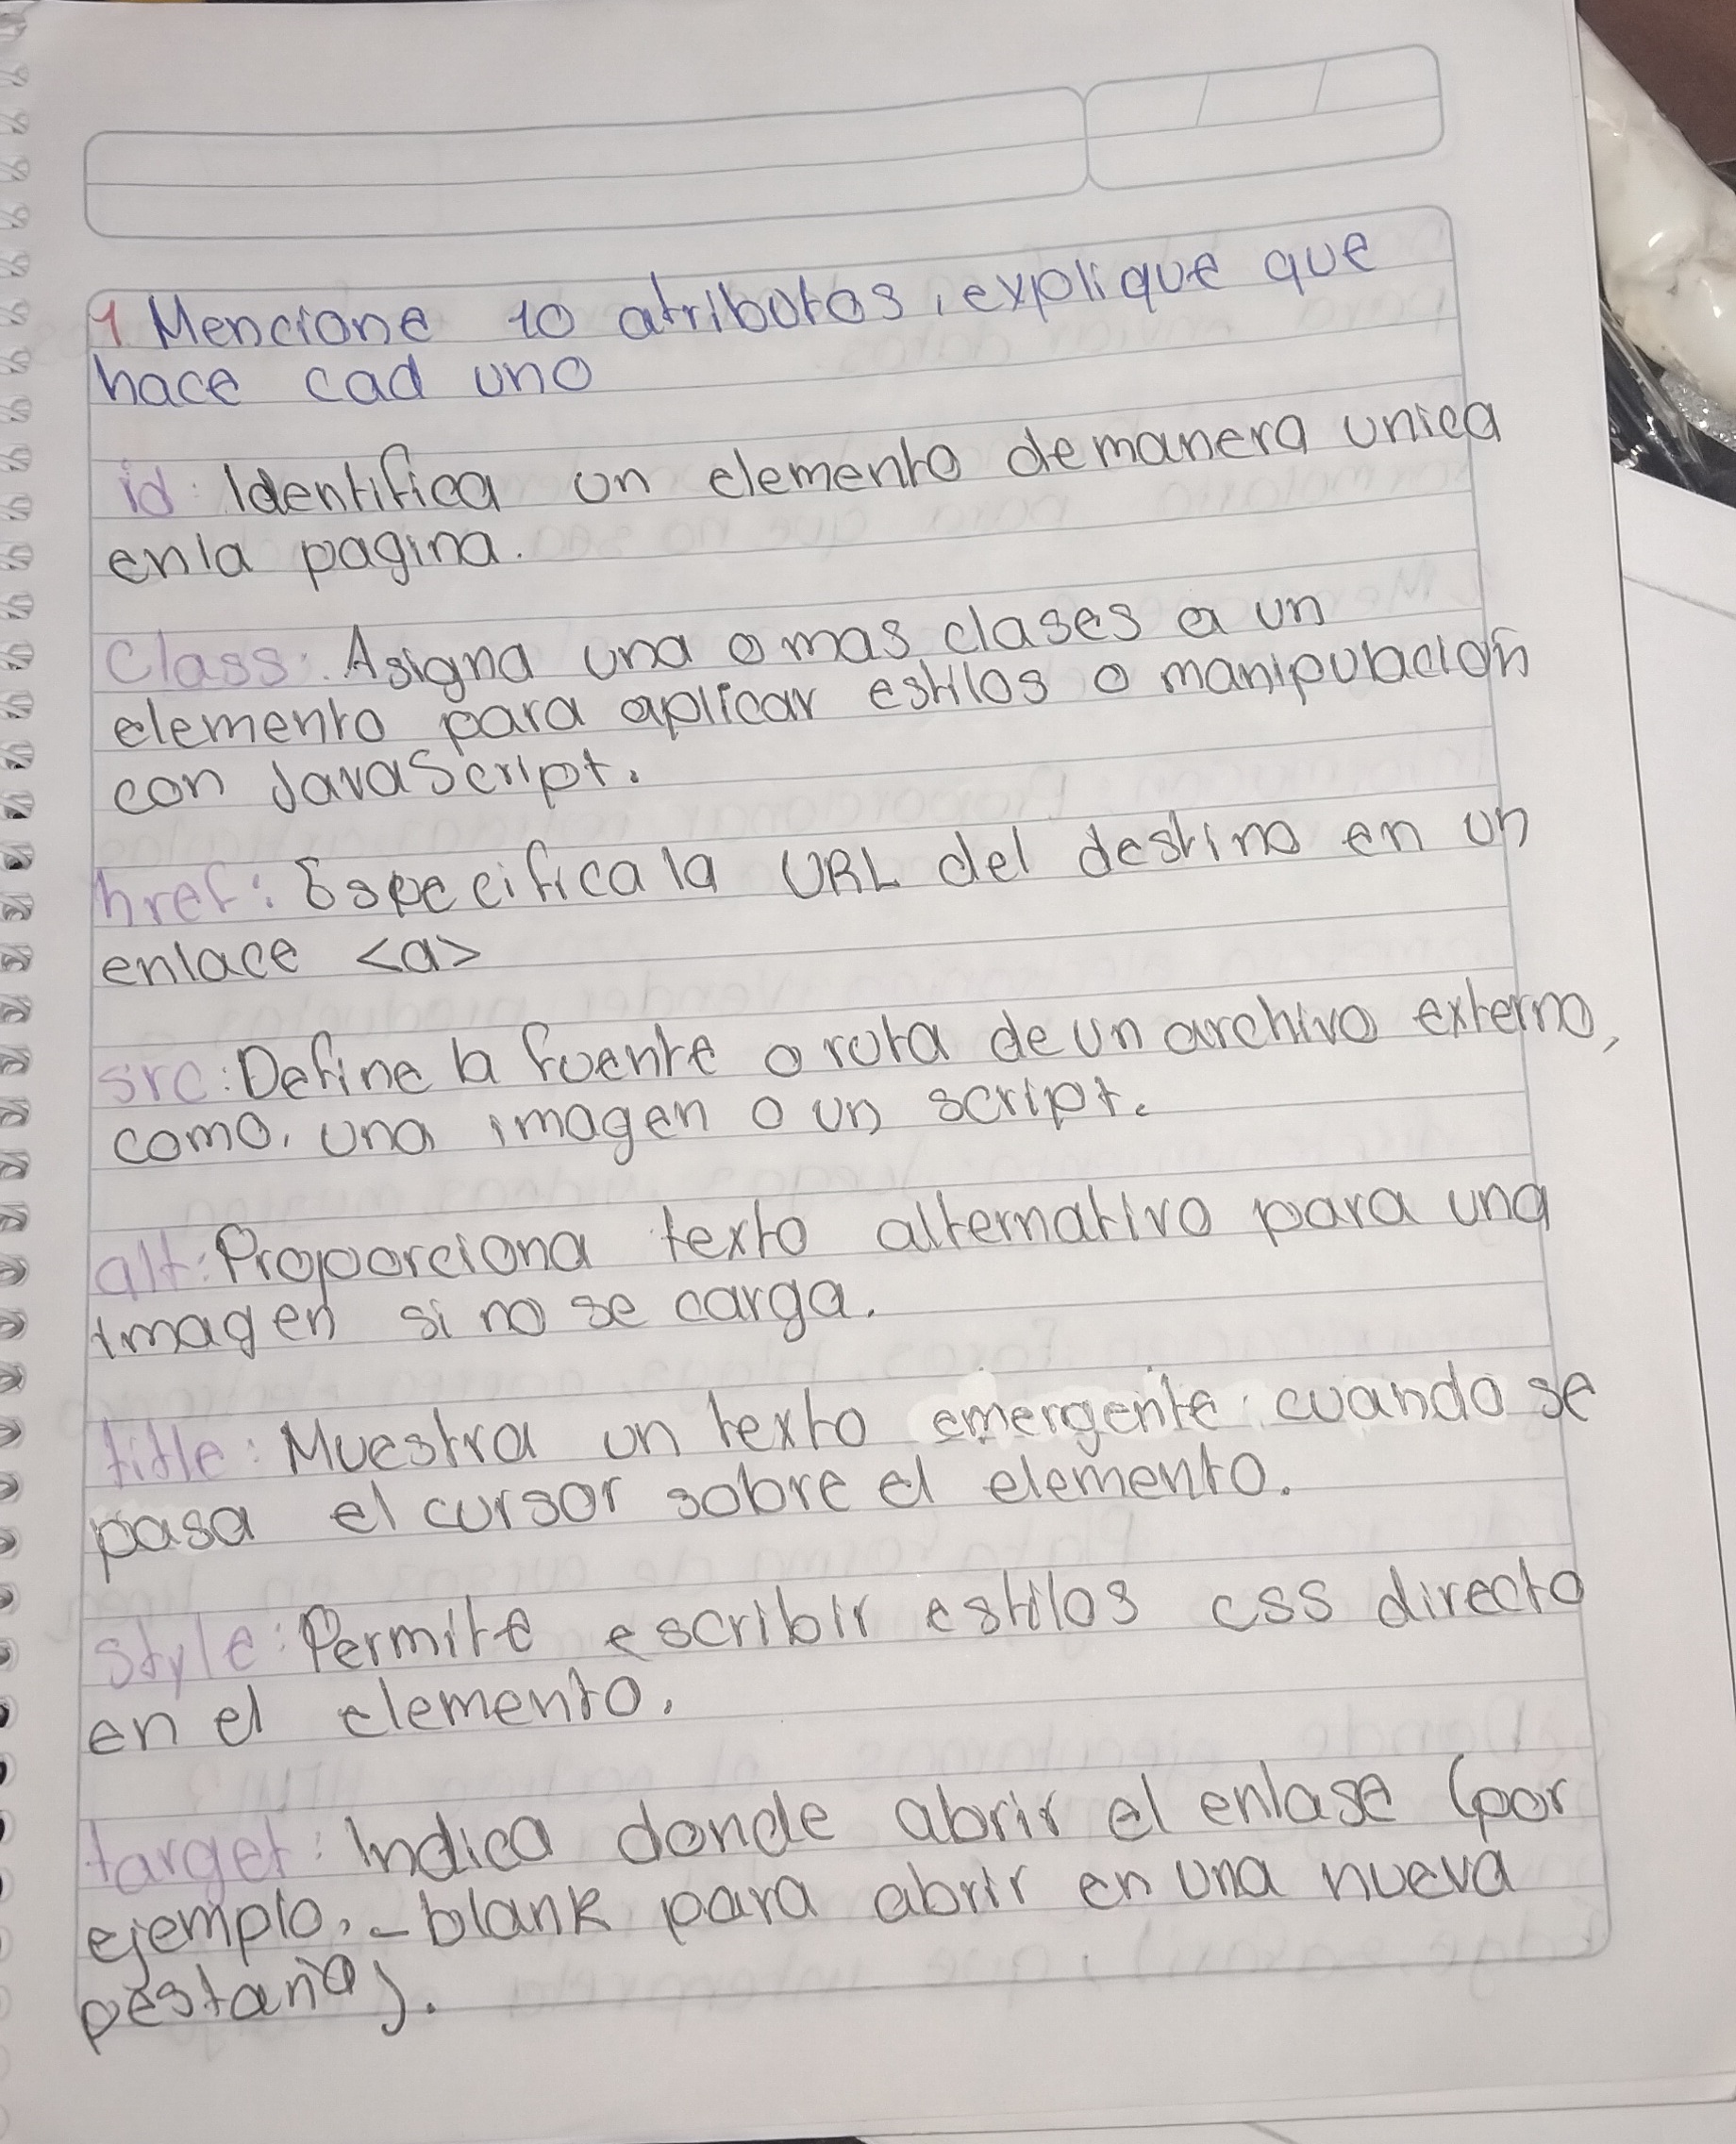 1 Mencione 10 atributos, explique que
hace cad uno
id: Identifica un elemento de manera unica
en la pagina.
Class: Asigna una o mas clases a un
elemento para aplicar estilos o manipulacion
con JavaScript.
href: Especifica la URL del destino en un
enlace <a>
src: Define la fuente o ruta de un archivo externo,
como, una imagen o un script.
alt: Proporciona texto alternativo para una
imagen si no se carga.
title: Muestra un texto emergente cuando se
pasa el cursor sobre el elemento.
style: Permite escribir estilos css directo
en el elemento.
target: Indica donde abrir el enlase (por
ejemplo, _blank para abrir en una nueva
pestaña).